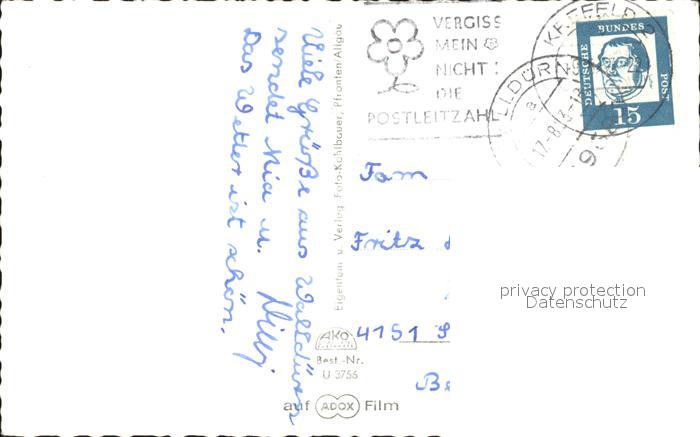 Viele Grüße aus Walldürn
sendet Mia u. Willj
Das Wetter ist schön.
Eigentum u. Verlag: Foto-Kohlbauer, Pfronten/Allgäu
VERGISS
MEIN
NICHT:
DIE
POSTLEITZAHL
KREFELD
LLDÜRN
17-8
DEUTSCHE
BUNDES
POST
15
Fam
Fritz
4151
AKO
Best.-Nr.
U 3756
auf ADOX Film
privacy protection
Datenschutz